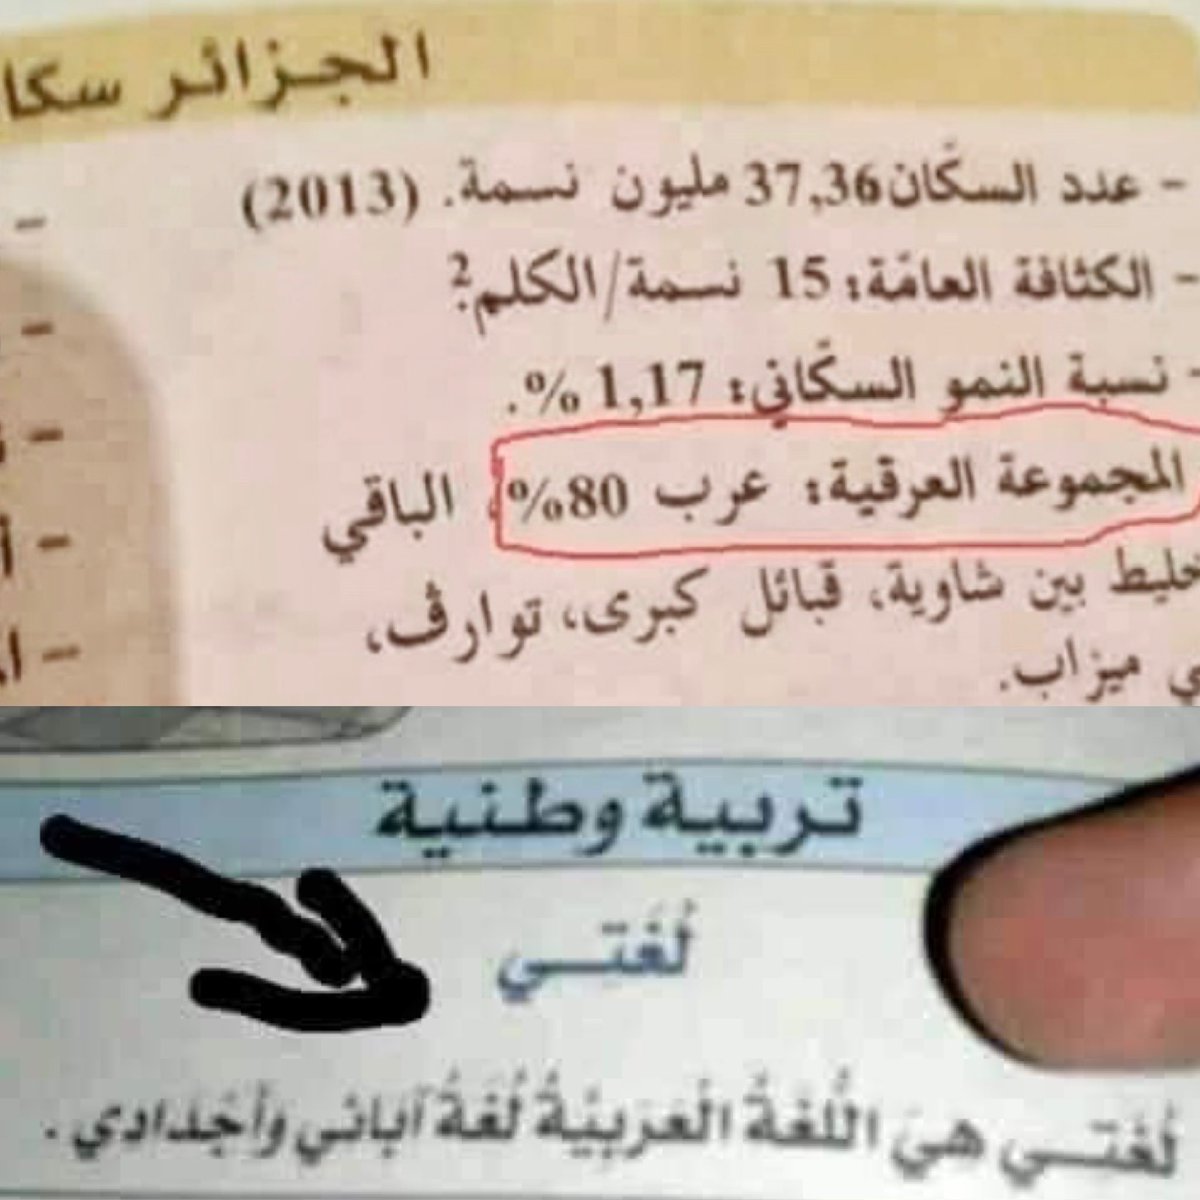 الجزائر سكا
- عدد السكّان 37,36 مليون نسمة. (2013)
- الكثافة العامّة: 15 نسمة/الكلم²
- نسبة النمو السكّاني: 1,17 %.
المجموعة العرقية: عرب 80%، الباقي
خليط بين شاوية، قبائل كبرى، توارڤ،
ميزاب.
تربية وطنية
لُغَتـــي
لُغَتـــي هيَ اللُّغةُ الْعَرَبيّةُ لُغةُ آبائي وأجْدادي.